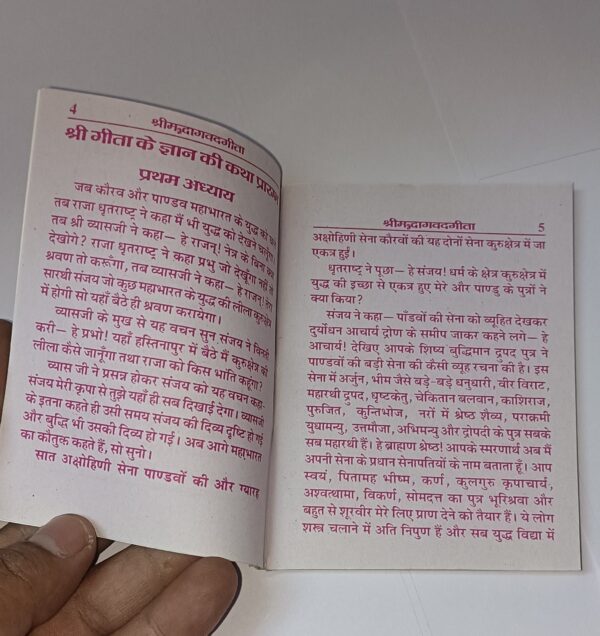 4
श्रीमद्भागवदगीता
श्री गीता के ज्ञान की कथा प्रारम्भ
प्रथम अध्याय
जब कौरव और पाण्डव महाभारत के युद्ध को
तब राजा धृतराष्ट्र ने कहा मैं भी युद्ध को देखने
तब श्री व्यासजी ने कहा— हे राजन्! नेत्र के बिना
देखोगे? राजा धृतराष्ट्र ने कहा प्रभु जो देखूंगा नहीं तो
श्रवण तो करूंगा, तब व्यासजी ने कहा— हे राजन्!
सारथी संजय जो कुछ महाभारत के युद्ध की लीला कुरुक्षेत्र
में होगी सो यहाँ बैठे ही श्रवण करायेगा।
व्यासजी के मुख से यह वचन सुन संजय ने विनती
करी— हे प्रभो! यहाँ हस्तिनापुर में बैठे मैं कुरुक्षेत्र की
लीला कैसे जानूंगा तथा राजा को किस भांति कहूंगा?
व्यास जी ने प्रसन्न होकर संजय को यह वचन कहा—
संजय मेरी कृपा से तुझे यहाँ ही सब दिखाई देगा। व्यासजी
के इतना कहते ही उसी समय संजय की दिव्य दृष्टि हो गई
और बुद्धि भी उसकी दिव्य हो गई। अब आगे महाभारत
का कौतुक कहते हैं, सो सुनो।
सात अक्षोहिणी सेना पाण्डवों की और ग्यारह
श्रीमद्भागवदगीता 5
अक्षोहिणी सेना कौरवों की यह दोनों सेना कुरुक्षेत्र में जा
एकत्र हुई।
धृतराष्ट्र ने पूछा— हे संजय! धर्म के क्षेत्र कुरुक्षेत्र में
युद्ध की इच्छा से एकत्र हुए मेरे और पाण्डु के पुत्रों ने
क्या किया?
संजय ने कहा— पाँडवों की सेना को व्यूहित देखकर
दुर्योधन आचार्य द्रोण के समीप जाकर कहने लगे— हे
आचार्य! देखिए आपके शिष्य बुद्धिमान द्रुपद पुत्र ने
पाण्डवों की बड़ी सेना की कैसी व्यूह रचना की है। इस
सेना में अर्जुन, भीम जैसे बड़े-बड़े धनुधारी, वीर विराट,
महारथी द्रुपद, धृष्टकेतु, चेकितान बलवान, काशिराज,
पुरुजित, कुन्तिभोज, नरों में श्रेष्ठ शैव्य, पराक्रमी
युधामन्यु, उत्तमौजा, अभिमन्यु और द्रोपदी के पुत्र सबके
सब महारथी हैं। हे ब्राह्मण श्रेष्ठ! आपके स्मरणार्थ अब मैं
अपनी सेना के प्रधान सेनापतियों के नाम बताता हूँ। आप
स्वयं, पितामह भीष्म, कर्ण, कुलगुरु कृपाचार्य,
अश्वत्थामा, विकर्ण, सोमदत्त का पुत्र भूरिश्रवा और
बहुत से शूरवीर मेरे लिए प्राण देने को तैयार हैं। ये लोग
शस्त्र चलाने में अति निपुण हैं और सब युद्ध विद्या में